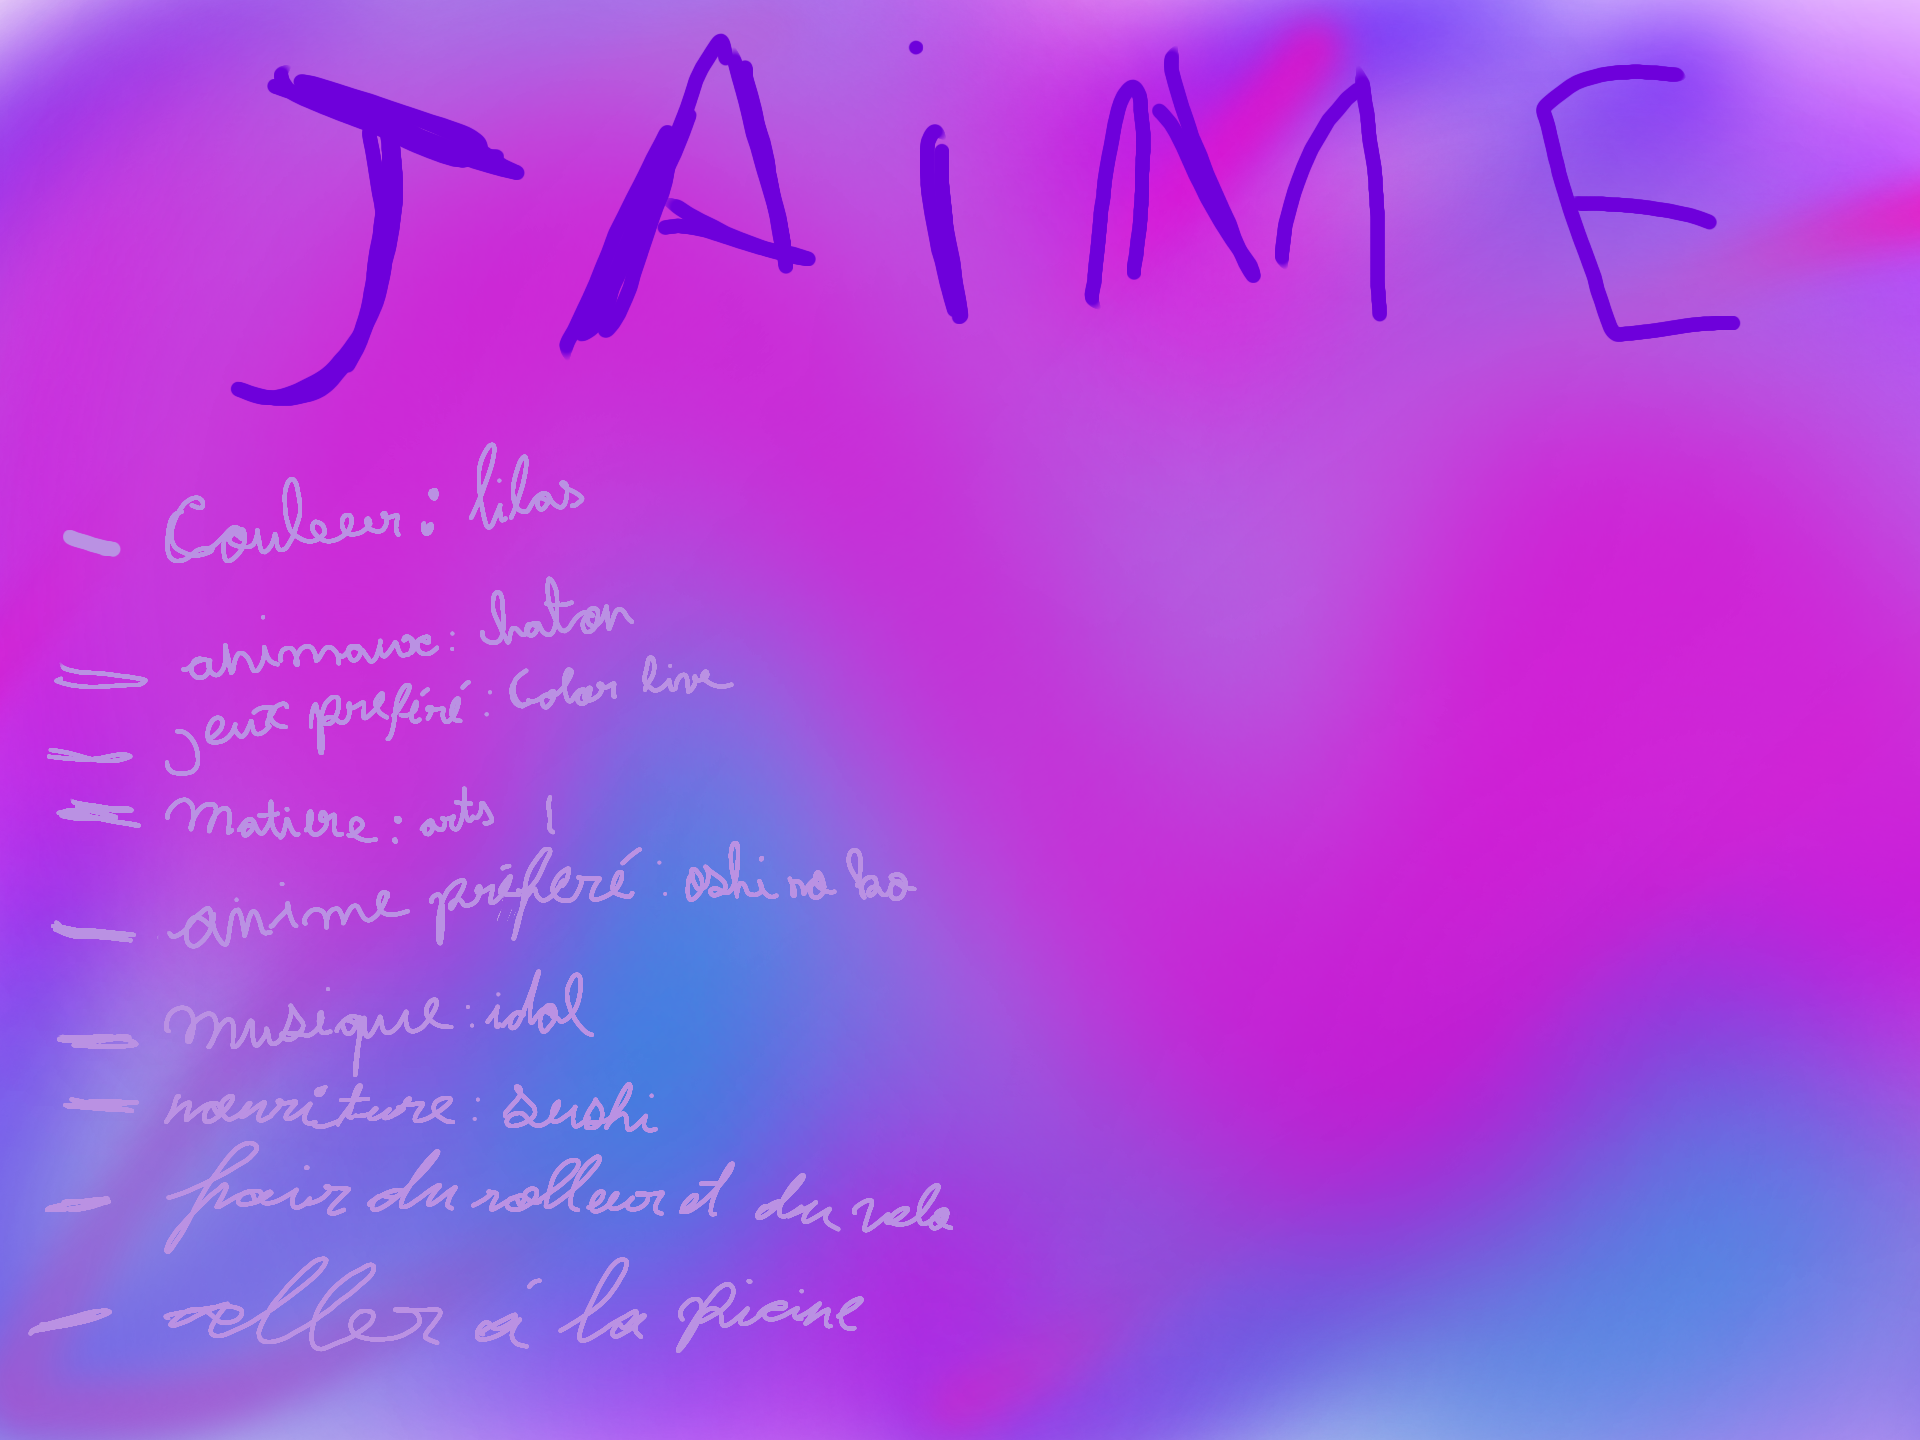 JAiME
- Couleur : lilas
- animaux : chaton
- jeux préféré : Color live
- Matiere : arts !
- anime préféré : oshi no ko
- musique : idol
- nouriture : sushi
- fair du rolleur et du velo
- aller à la picine